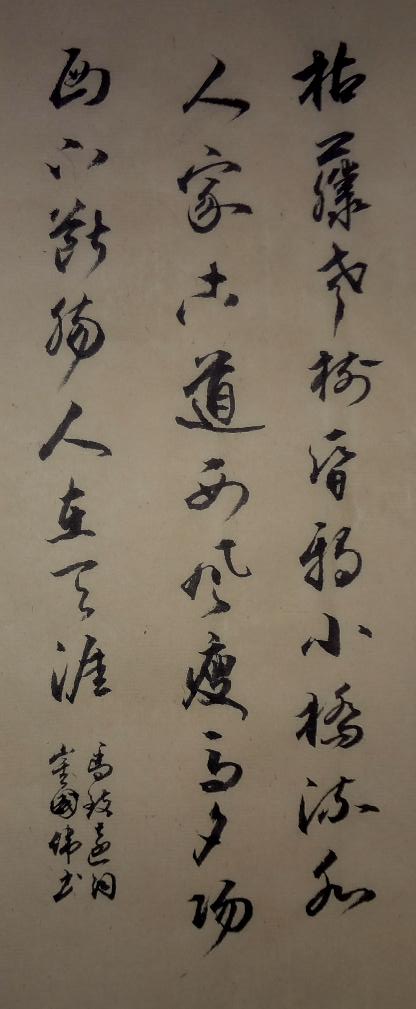 枯藤老樹昏鴉小橋流水
人家古道西風瘦馬夕陽
西下斷腸人在天涯
馬致遠詞
國偉書